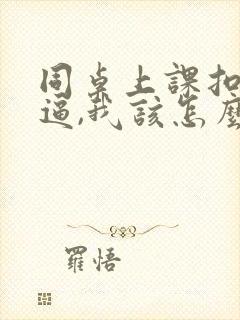 同桌上課扣
逼,我該怎麼
羅悟